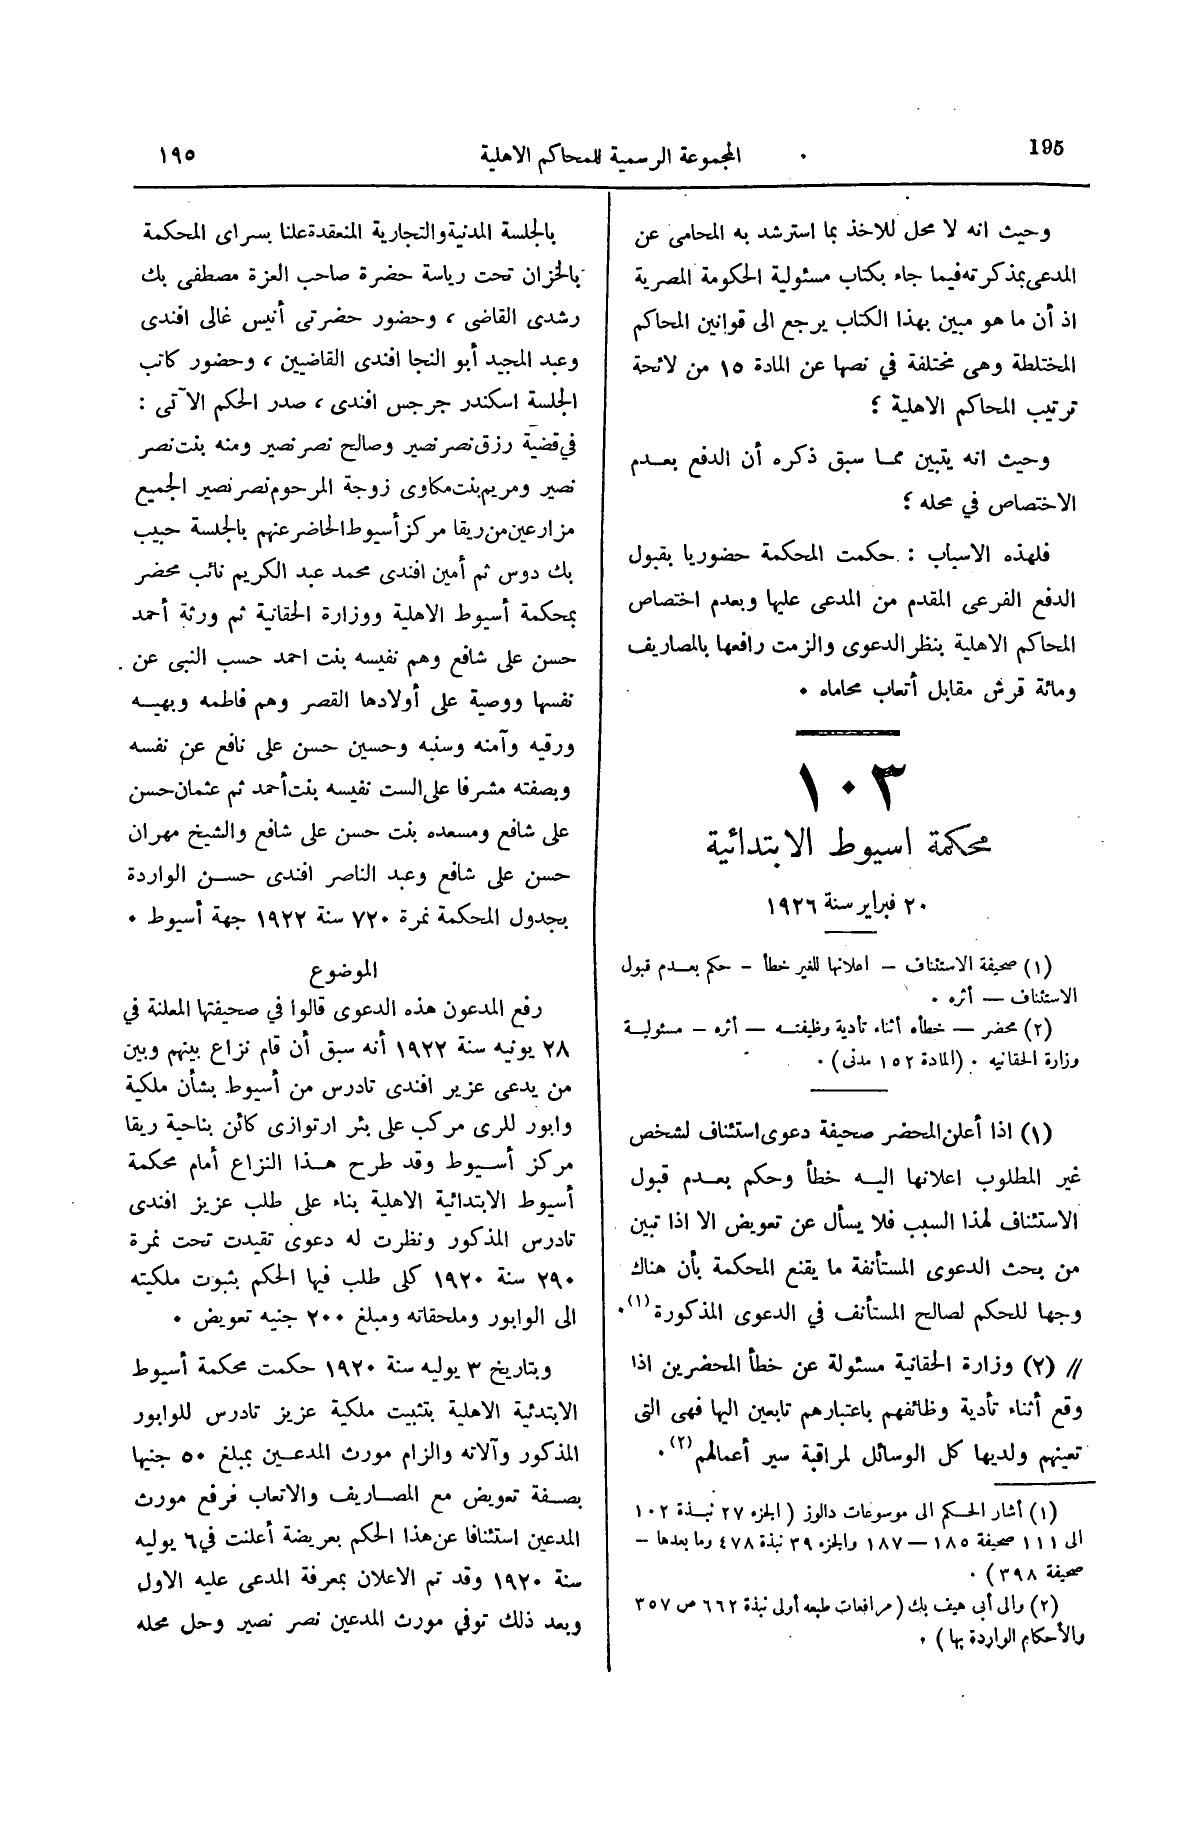 195
المجموعة الرسمية للمحاكم الاهلية
١٩٥
وحيث انه لا محل للاخذ بما استرشد به المحامى عن
المدعى بمذكرته فيما جاء بكتاب مسئولية الحكومة المصرية
اذ أن ما هو مبين بهذا الكتاب يرجع الى قوانين المحاكم
المختلطة وهى مختلفة في نصها عن المادة ١٥ من لائحة
ترتيب المحاكم الاهلية ؛
وحيث انه يتبين مما سبق ذكره أن الدفع بعدم
الاختصاص في محله ؛
فلهذه الاسباب : حكمت المحكمة حضوريا بقبول
الدفع الفرعى المقدم من المدعى عليها وبعدم اختصاص
المحاكم الاهلية بنظر الدعوى والزمت رافعها بالمصاريف
ومائة قرش مقابل أتعاب محاماه .
١٠٣
محكمة اسيوط الابتدائية
٢٠ فبراير سنة ١٩٢٦
(١) صحيفة الاستئناف – اعلانها للغير خطأ – حكم بعدم قبول
الاستئناف – أثره .
(٢) محضر – خطأه أثناء تأدية وظيفته – أثره – مسئولية
وزارة الحقانيه . (المادة ١٥٢ مدنى) .
(١) اذا أعلن المحضر صحيفة دعوى استئناف لشخص
غير المطلوب اعلانها اليه خطأ وحكم بعدم قبول
الاستئناف لهذا السبب فلا يسأل عن تعويض الا اذا تبين
من بحث الدعوى المستأنفة ما يقنع المحكمة بأن هناك
وجها للحكم لصالح المستأنف في الدعوى المذكورة (١).
// (٢) وزارة الحقانية مسئولة عن خطأ المحضرين اذا
وقع أثناء تأدية وظائفهم باعتبارهم تابعين اليها فهى التى
تعينهم ولديها كل الوسائل لمراقبة سير أعمالهم (٢).
(١) أشار الحكم الى موسوعات دالوز (الجزء ٢٧ نبذة ١٠٢
الى ١١١ صحيفة ١٨٥ – ١٨٧ والجزء ٣٩ نبذة ٤٧٨ وما بعدها –
صحيفة ٣٩٨) .
(٢) والى أبى هيف بك (مرافعات طبعه أولى نبذة ٦٦٢ ص ٣٥٧
والأحكام الواردة بها) .
بالجلسة المدنية والتجارية المنعقدة علنا بسراى المحكمة
بالخزان تحت رياسة حضرة صاحب العزة مصطفى بك
رشدى القاضى ، وحضور حضرتى أنيس غالى افندى
وعبد المجيد أبو النجا افندى القاضيين ، وحضور كاتب
الجلسة اسكندر جرجس افندى ، صدر الحكم الآتى :
في قضية رزق نصر نصير وصالح نصر نصير ومنه بنت نصر
نصير ومريم بنت مكاوى زوجة المرحوم نصر نصير الجميع
مزارعين من ريقا مركز أسيوط الحاضر عنهم بالجلسة حبيب
بك دوس ثم أمين افندى محمد عبد الكريم نائب محضر
بمحكمة أسيوط الاهلية ووزارة الحقانية ثم ورثة أحمد
حسن على شافع وهم نفيسه بنت احمد حسب النبى عن
نفسها ووصية على أولادها القصر وهم فاطمه وبهيه
ورقيه وآمنه وسنبه وحسين حسن على نافع عن نفسه
وبصفته مشرفا على الست نفيسه بنت أحمد ثم عثمان حسن
على شافع ومسعده بنت حسن على شافع والشيخ مهران
حسن على شافع وعبد الناصر افندى حسن الواردة
بجدول المحكمة نمرة ٧٢٠ سنة ١٩٢٢ جهة أسيوط .
الموضوع
رفع المدعون هذه الدعوى قالوا في صحيفتها المعلنة في
٢٨ يونيه سنة ١٩٢٢ أنه سبق أن قام نزاع بينهم وبين
من يدعى عزيز افندى تادرس من أسيوط بشأن ملكية
وابور للرى مركب على بئر ارتوازى كائن بناحية ريقا
مركز أسيوط وقد طرح هذا النزاع أمام محكمة
أسيوط الابتدائية الاهلية بناء على طلب عزيز افندى
تادرس المذكور ونظرت له دعوى تقيدت تحت نمرة
٢٩٠ سنة ١٩٢٠ كلى طلب فيها الحكم بثبوت ملكيته
الى الوابور وملحقاته ومبلغ ٢٠٠ جنيه تعويض .
وبتاريخ ٣ يوليه سنة ١٩٢٠ حكمت محكمة أسيوط
الابتدئية الاهلية بتثبيت ملكية عزيز تادرس للوابور
المذكور وآلاته والزام مورث المدعين بمبلغ ٥٠ جنيها
بصفة تعويض مع المصاريف والاتعاب فرفع مورث
المدعين استئنافا عن هذا الحكم بعريضة أعلنت في ٦ يوليه
سنة ١٩٢٠ وقد تم الاعلان بمعرفة المدعى عليه الاول
وبعد ذلك توفي مورث المدعين نصر نصير وحل محله